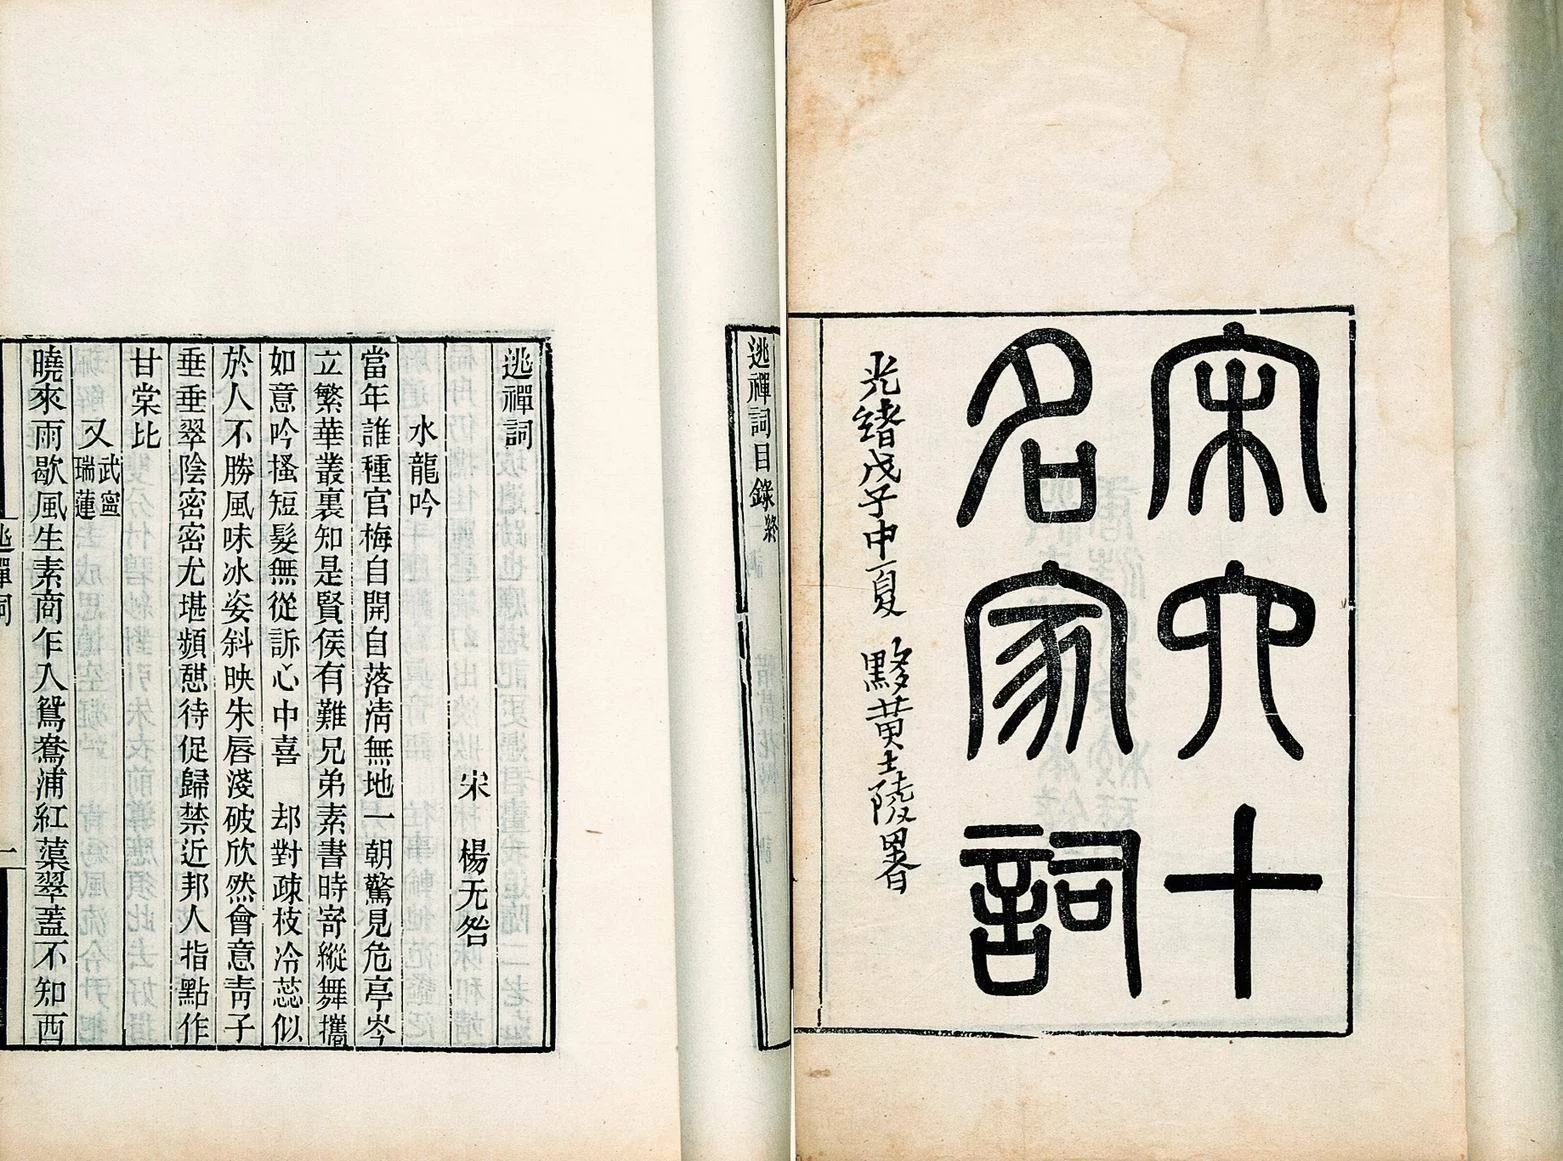 宋六十
名家詞
光緒戊子中夏 黟黄士陵署
逃禪詞目錄終
逃禪詞
宋 楊无咎
水龍吟
當年誰種官梅自開自落淸無地一朝驚見危亭岑
立繁華叢裏知是賢侯有難兄弟素書時寄縱舞攜
如意吟搔短髮無從訴心中喜 却對疎枝冷蕊似
於人不勝風味冰姿斜映朱唇淺破欣然會意靑子
垂垂翠陰密密尤堪頻憇待促歸禁近邦人指點作
甘棠比
又武寧瑞蓮
曉來雨歇風生素商乍入鴛鴦浦紅蕖翠蓋不知西
逃禪詞
一